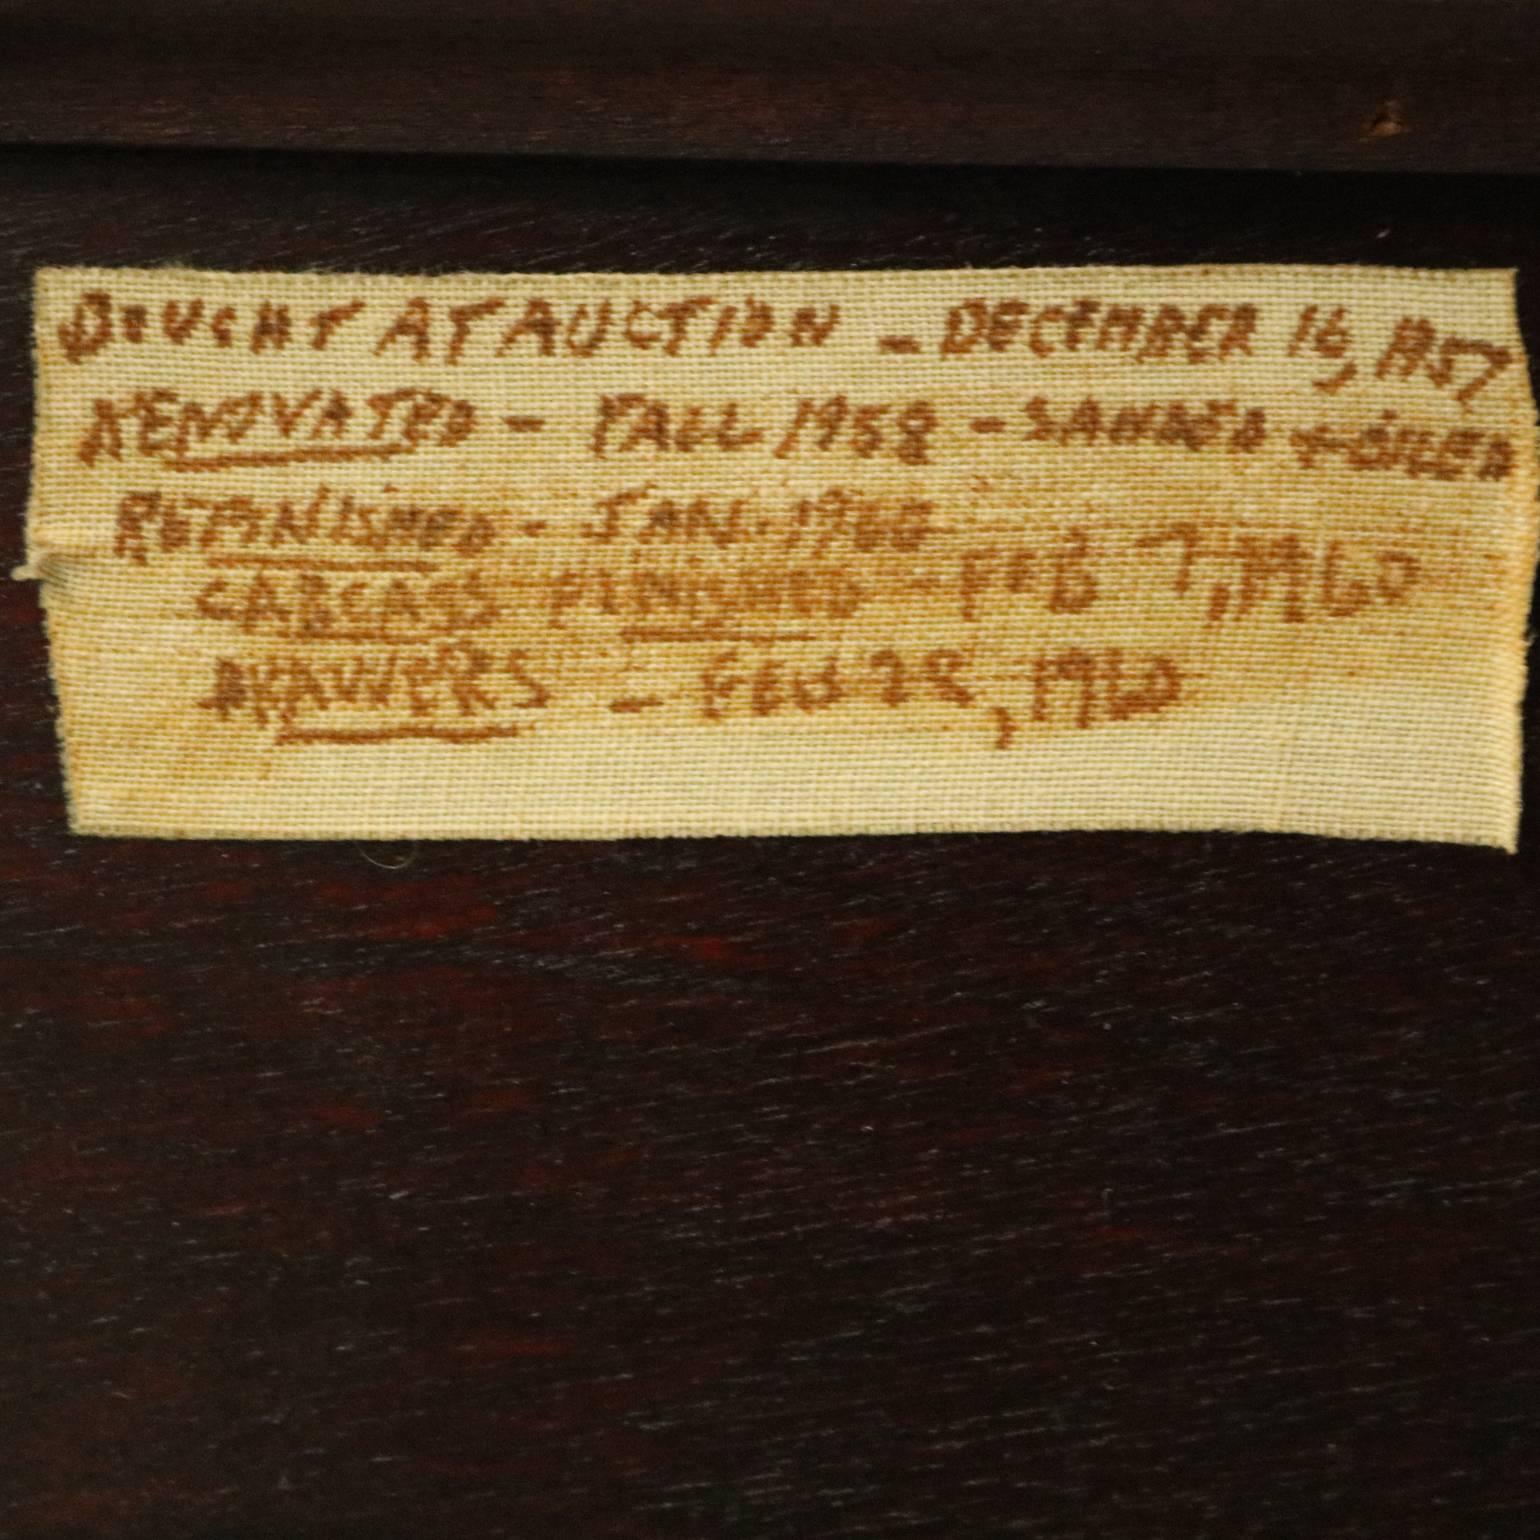 BOUGHT AT AUCTION - DECEMBER 16, 1957
RENOVATED - FALL 1958 - SANDED + OILED
REFINISHED - JAN. 1960
CARCASS FINISHED - FEB 7, 1960
DRAWERS - FEB 28, 1960